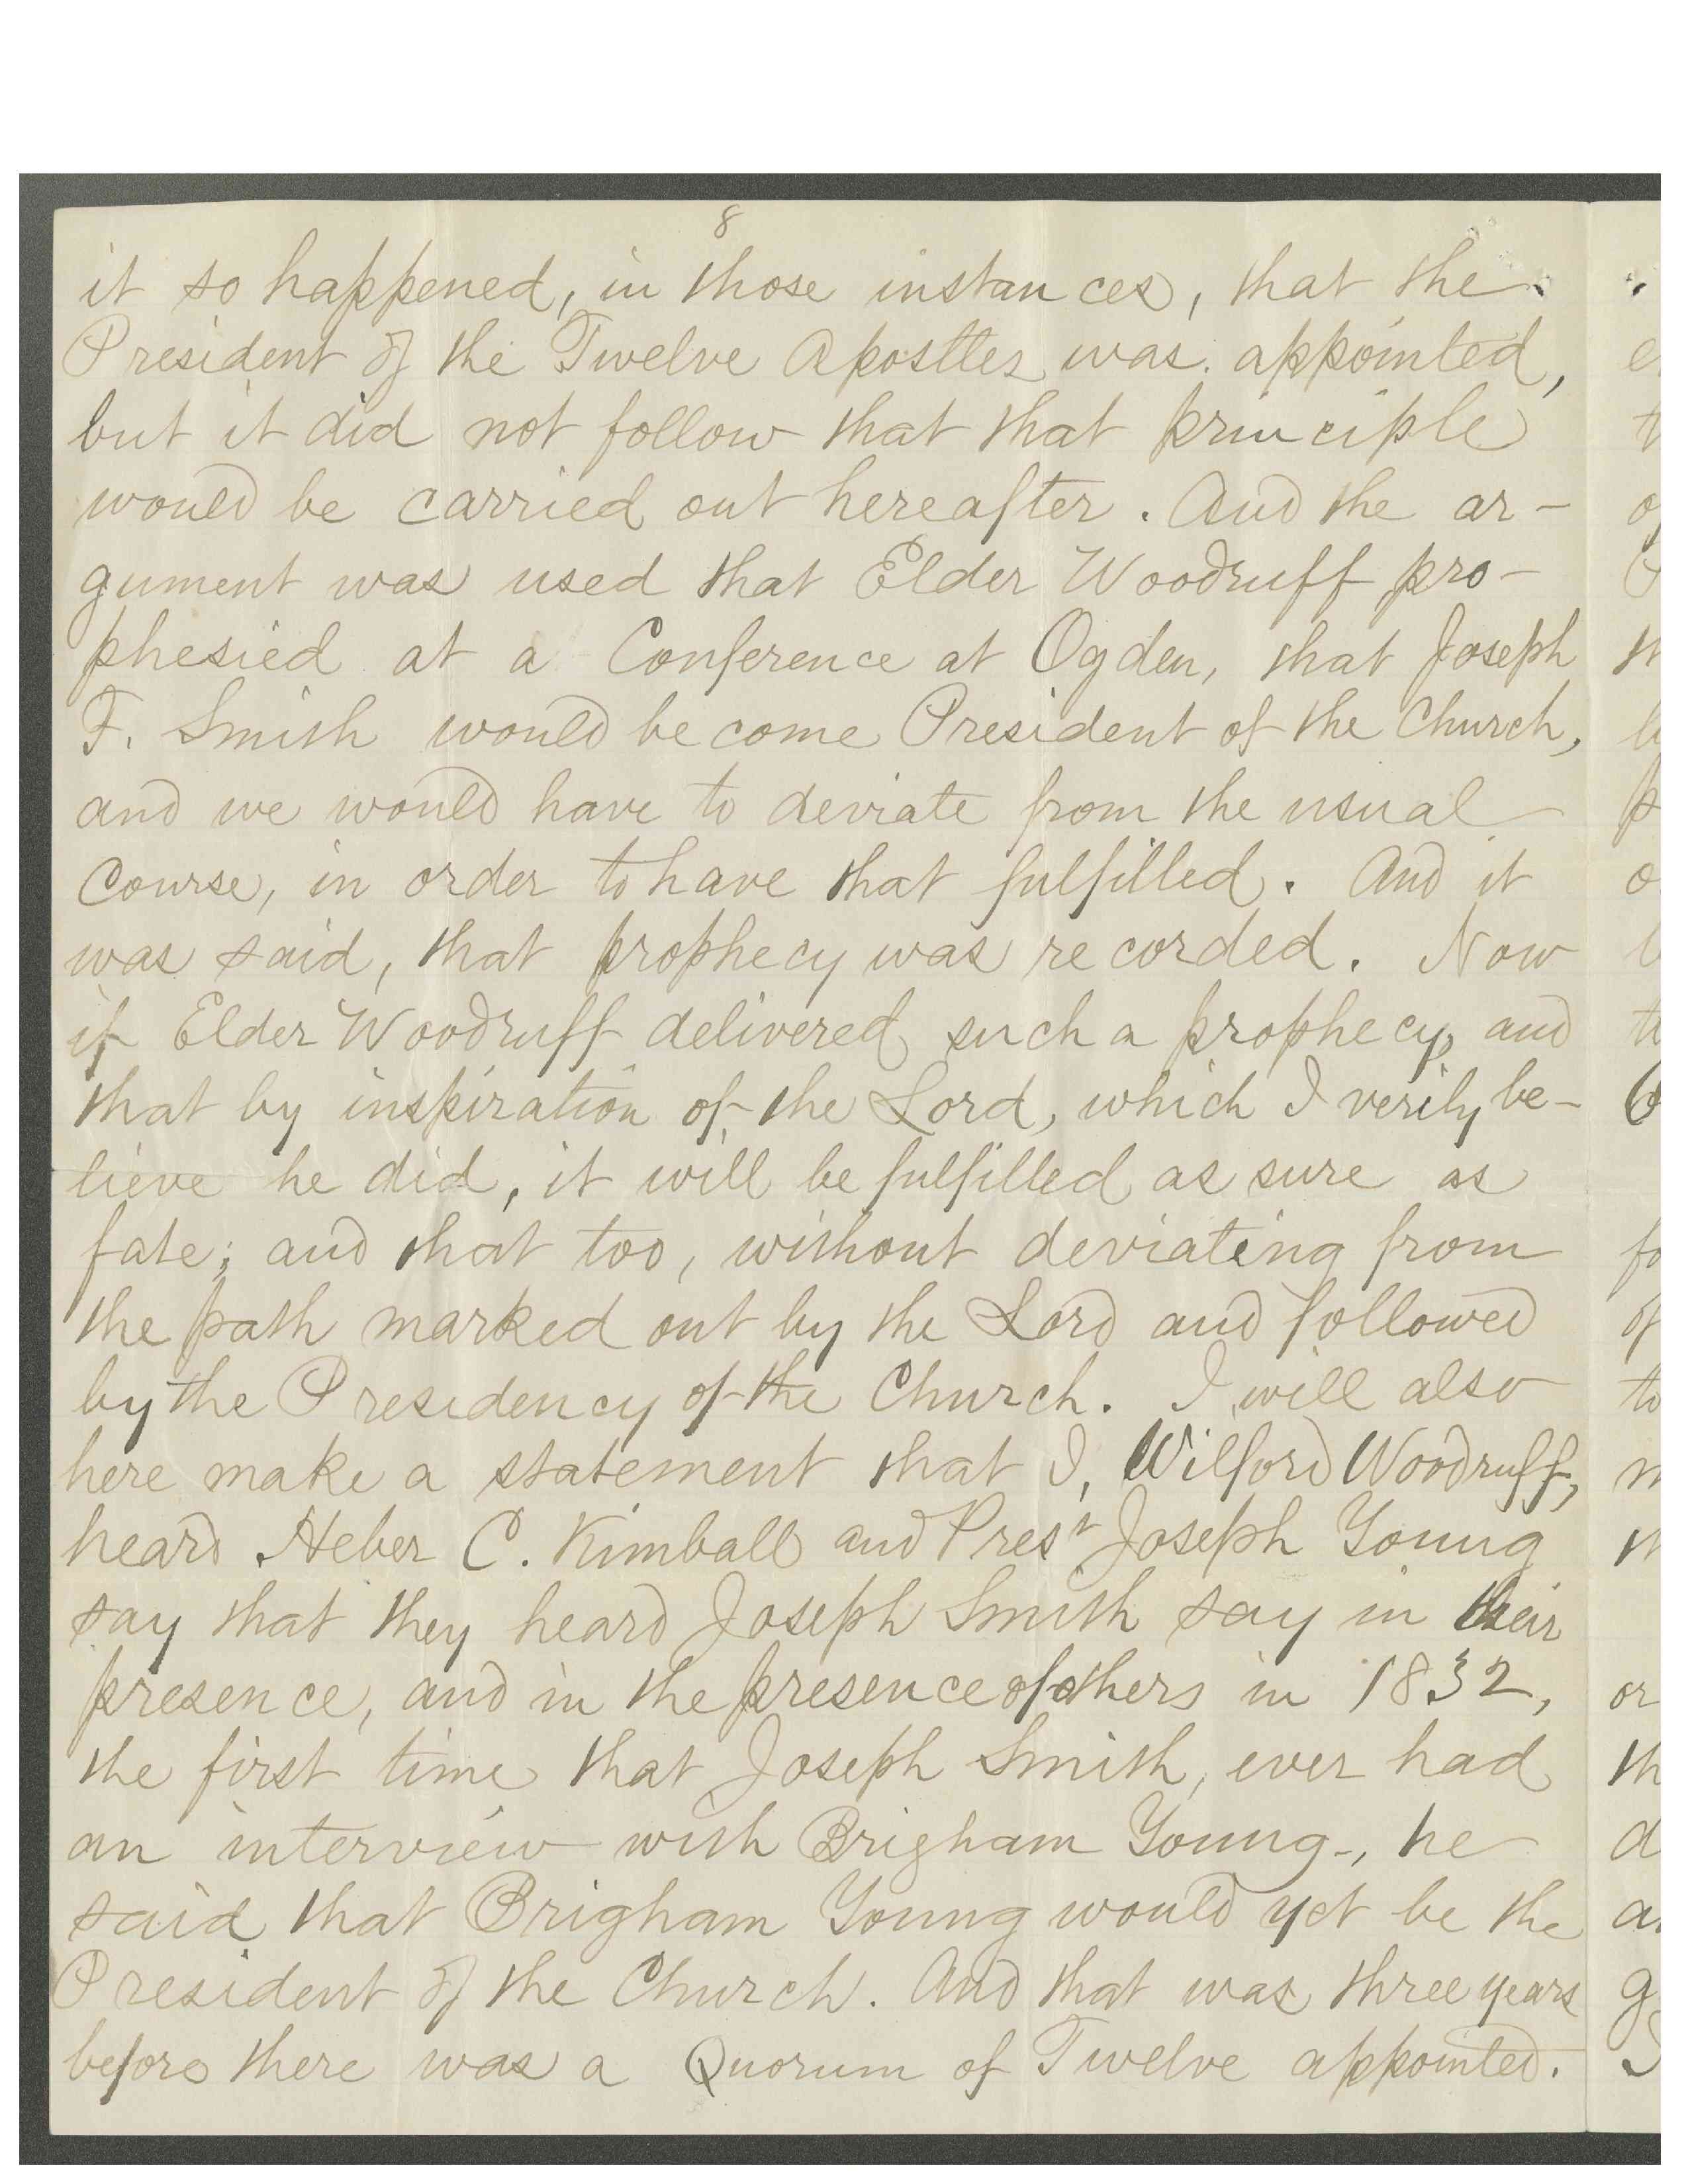 8
it so happened, in those instances, that the
President of the Twelve Apostles was appointed,
but it did not follow that that principle
would be carried out hereafter. And the ar-
gument was used that Elder Woodruff pro-
phesied at a Conference at Ogden, that Joseph
F. Smith would become President of the Church,
and we would have to deviate from the usual
course, in order to have that fulfilled. And it
was said, that prophecy was recorded. Now
if Elder Woodruff delivered such a prophecy, and
that by inspiration of the Lord, which I verily be-
lieve he did, it will be fulfilled as sure as
fate; and that too, without deviating from
the path marked out by the Lord and followed
by the Presidency of the Church. I will also
here make a statement that I, Wilford Woodruff,
heard Heber C. Kimball and Prest Joseph Young
say that they heard Joseph Smith say in their
presence, and in the presence of others in 1832,
the first time that Joseph Smith, ever had
an interview with Brigham Young-, he
said that Brigham Young would yet be the
President of the Church. And that was three years
before there was a Quorum of Twelve appointed.